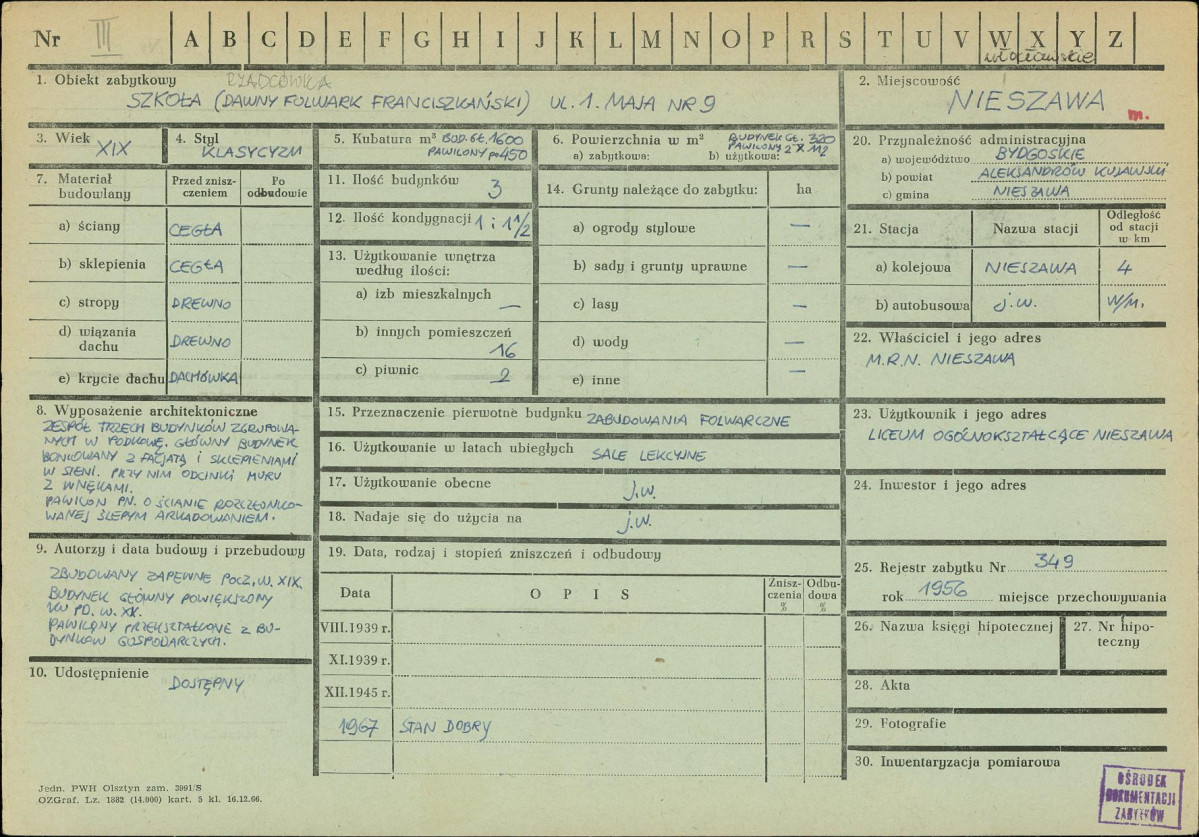 Nr III A B C D E F G H I J K L M N O P R S T U V W X Y Z
włocławskie
1. Obiekt zabytkowy RZĄDCÓWKA
SZKOŁA (DAWNY FOLWARK FRANCISZKAŃSKI) UL. 1. MAJA NR 9
2. Miejscowość
NIESZAWA
m.
3. Wiek
XIX
4. Styl
KLASYCYZM
5. Kubatura m³ BUD. GŁ. 1600
PAWILONY po 450
6. Powierzchnia w m² BUDYNEK GŁ. 320
PAWILONY 2 X 112
a) zabytkowa: b) użytkowa:
7. Materiał budowlany
Przed zniszczeniem
Po odbudowie
a) ściany CEGŁA
b) sklepienia CEGŁA
c) stropy DREWNO
d) wiązania dachu DREWNO
e) krycie dachu DACHÓWKA
8. Wyposażenie architektoniczne
ZESPÓŁ TRZECH BUDYNKÓW ZGRUPOWA-
NYCH W PODKOWĘ. GŁÓWNY BUDYNEK
BONIOWANY Z FACJATĄ I SKLEPIENIAMI
W SIENI. PRZY NIM ODCINKI MURU
Z WNĘKAMI.
PAWILON PN. O ŚCIANIE ROZCZŁONKO-
WANEJ ŚLEPYM ARKADOWANIEM.
9. Autorzy i data budowy i przebudowy
ZBUDOWANY ZAPEWNE POCZ. W. XIX.
BUDYNEK GŁÓWNY POWIĘKSZONY
W PD. W. XX.
PAWILONY PRZEKSZTAŁCONE Z BU-
DYNKÓW GOSPODARCZYCH.
10. Udostępnienie
DOSTĘPNY
11. Ilość budynków 3
12. Ilość kondygnacji 1 i 1 1/2
13. Użytkowanie wnętrza
według ilości:
a) izb mieszkalnych —
b) innych pomieszczeń
16
c) piwnic 2
14. Grunty należące do zabytku: ha
a) ogrody stylowe —
b) sady i grunty uprawne —
c) lasy —
d) wody —
e) inne —
15. Przeznaczenie pierwotne budynku ZABUDOWANIA FOLWARCZNE
16. Użytkowanie w latach ubiegłych SALE LEKCYJNE
17. Użytkowanie obecne j.w.
18. Nadaje się do użycia na j.w.
19. Data, rodzaj i stopień zniszczeń i odbudowy
Data O P I S Znisz-
czenia
% Odbu-
dowa
%
VIII.1939 r.
XI.1939 r.
XII.1945 r.
1967 STAN DOBRY
20. Przynależność administracyjna
a) województwo BYDGOSKIE
b) powiat ALEKSANDRÓW KUJAWSKI
c) gmina NIESZAWA
21. Stacja Nazwa stacji Odległość
od stacji
w km
a) kolejowa NIESZAWA 4
b) autobusowa j.w. W/M.
22. Właściciel i jego adres
M.R.N. NIESZAWA
23. Użytkownik i jego adres
LICEUM OGÓLNOKSZTAŁCĄCE NIESZAWA
24. Inwestor i jego adres
25. Rejestr zabytku Nr 349
rok 1956 miejsce przechowywania
26. Nazwa księgi hipotecznej
27. Nr hipo-
teczny
28. Akta
29. Fotografie
30. Inwentaryzacja pomiarowa
OŚRODEK
DOKUMENTACJI
ZABYTKÓW
Jedn. PWH Olsztyn zam. 3991/S
OZGraf. Lz. 1882 (14.000) kart. 5 kl. 16.12.66.